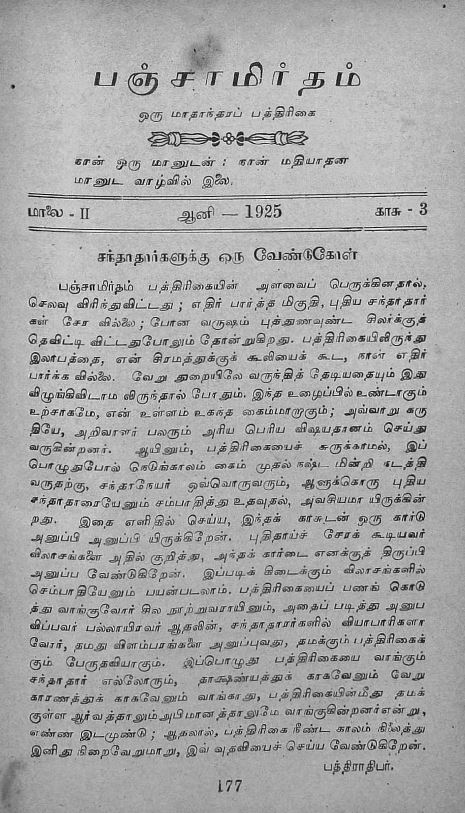 பஞ்சாமிர்தம்
ஒரு மாதாந்தரப் பத்திரிகை
நான் ஒரு மானுடன் : நான் மதியாதன
மானுட வாழ்வில் இலை.
மாலை - II ஆனி — 1925 காசு - 3
சந்தாதார்களுக்கு ஒரு வேண்டுகோள்
பஞ்சாமிர்தம் பத்திரிகையின் அளவைப் பெருக்கினதால்,
செலவு விரிந்துவிட்டது ; எதிர் பார்த்த மிகுதி, புதிய சந்தாதார்
கள் சேர வில்லை ; போன வருஷம் புத்துணவுண்ட சிலர்க்குத்
தெவிட்டி விட்டதுபோலும் தோன்றுகிறது. பத்திரிகையிலிருந்து
இலாபத்தை, என் சிரமத்துக்குக் கூலியைக் கூட, நான் எதிர்
பார்க்க வில்லை. வேறு துறையிலே வருந்தித் தேடியதையும் இது
விழுங்கிவிடாம லிருந்தால் போதும். இந்த உழைப்பில் உண்டாகும்
உற்சாகமே, என் உள்ளம் உகந்த கைம்மாறாகும் ; அவ்வாறு கரு
தியே, அறிவாளர் பலரும் அரிய பெரிய விஷயதானம் செய்து
வருகின்றனர். ஆயினும், பத்திரிகையைச் சுருக்காமல், இப்
பொழுதுபோல் நெடுங்காலம் கைம் முதல் நஷ்ட மின்றி நடத்தி
வருதற்கு, சந்தாநேயர் ஒவ்வொருவரும், ஆளுக்கொரு புதிய
சந்தாதாரையேனும் சம்பாதித்து உதவுதல், அவசியமா யிருக்கின்
றது. இதை எளிதில் செய்ய, இந்தக் காசுடன் ஒரு கார்டு
அனுப்பி அனுப்பி யிருக்கிறேன். புதிதாய்ச் சேரக் கூடியவர்
விலாசங்களை அதில் குறித்து, அந்தக் கார்டை எனக்குத் திருப்பி
அனுப்ப வேண்டுகிறேன். இப்படிக் கிடைக்கும் விலாசங்களில்
செம்பாதியேனும் பயன்படலாம். பத்திரிகையைப் பணங் கொடு
த்து வாங்குவோர் சில நூற்றுவராயினும், அதைப் படித்து அனுப
விப்பவர் பல்லாயிரவர் ஆதலின், சந்தாதாரர்களில் வியாபாரிகளா
வோர், தமது விளம்பரங்களை அனுப்புவது, தமக்கும் பத்திரிகைக்
கும் பேருதவியாகும். இப்பொழுது பத்திரிகையை வாங்கும்
சந்தாதார் எல்லோரும், தாக்ஷண்யத்துக் காகவேனும் வேறு
காரணத்துக் காகவேனும் வாங்காது, பத்திரிகையின்மீது தமக்
குள்ள ஆர்வத்தாலும் அபிமானத்தாலுமே வாங்குகின்றனர் என்று,
எண்ண இடமுண்டு ; ஆதலால், பத்திரிகை நீண்ட காலம் நிலைத்து
இனிது நிறைவேறுமாறு, இவ் வுதவியைச் செய்ய வேண்டுகிறேன்.
பத்திராதிபர்.
177